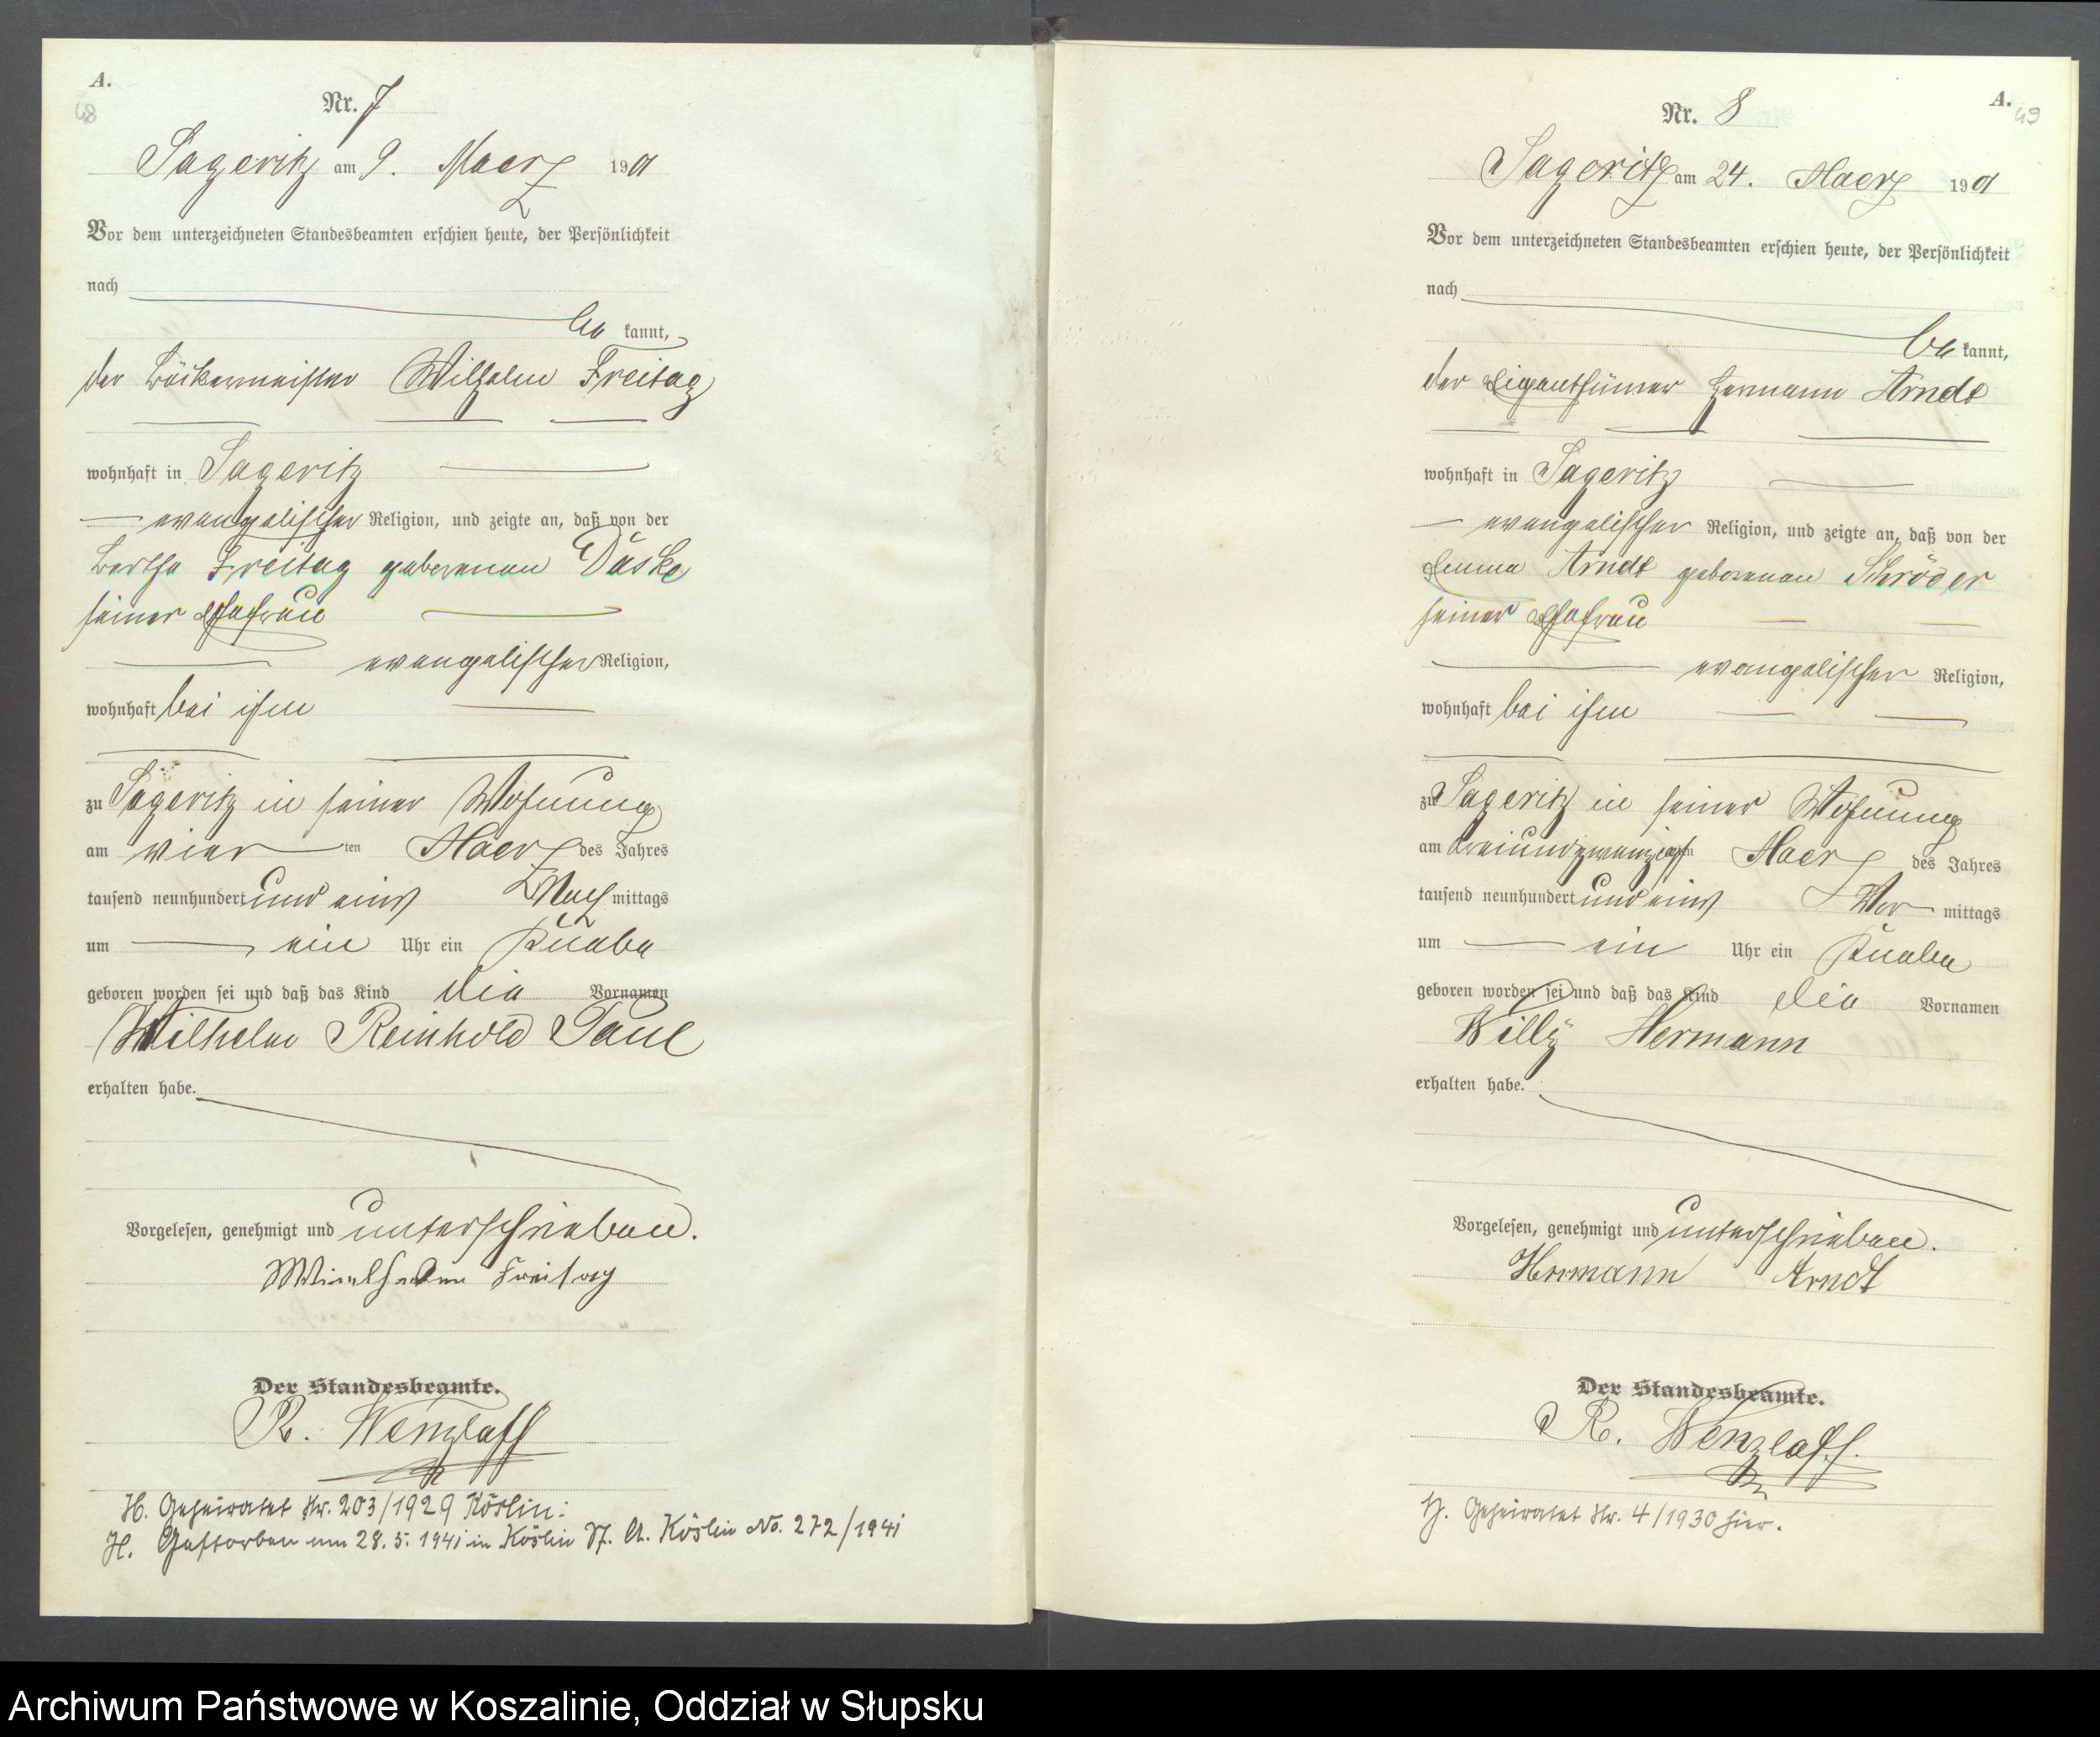 A.
48
Nr. 7
Sageritz am 9. Maerz 1901
Vor dem unterzeichneten Standesbeamten erschien heute, der Persönlichkeit
nach
be kannt,
der Bäckermeister Wilhelm Freitag
wohnhaft in Sageritz
evangelischer Religion, und zeigte an, daß von der
Bertha Freitag geborenen Däske
seiner Ehefrau
evangelischer Religion,
wohnhaft bei ihm
zu Sageritz in seiner Wohnung
am vier ten Maerz des Jahres
tausend neunhundert und eins Nach mittags
um ein Uhr ein Knabe
geboren worden sei und daß das Kind die Vornamen
Wilhelm Reinhold Paul
erhalten habe.
Vorgelesen, genehmigt und unterschrieben.
Wilhelm Freitag
Der Standesbeamte.
R. Wenzlaff
H. Geheiratet Nr. 203/1929 Köslin.
H. Gestorben am 28.5.1941 in Köslin St. A. Köslin No. 272/1941
A.
49
Nr. 8
Sageritz am 24. Maerz 1901
Vor dem unterzeichneten Standesbeamten erschien heute, der Persönlichkeit
nach
be kannt,
der Eigenthümer Hermann Arndt
wohnhaft in Sageritz
evangelischer Religion, und zeigte an, daß von der
Emma Arndt geborenen Schröder
seiner Ehefrau
evangelischer Religion,
wohnhaft bei ihm
zu Sageritz in seiner Wohnung
am dreiundzwanzigsten Maerz des Jahres
tausend neunhundert und eins Vor mittags
um ein Uhr ein Knabe
geboren worden sei und daß das Kind die Vornamen
Willy Hermann
erhalten habe.
Vorgelesen, genehmigt und unterschrieben.
Hermann Arndt
Der Standesbeamte.
R. Wenzlaff.
H. Geheiratet Nr. 4/1930 hier.
Archiwum Państwowe w Koszalinie, Oddział w Słupsku